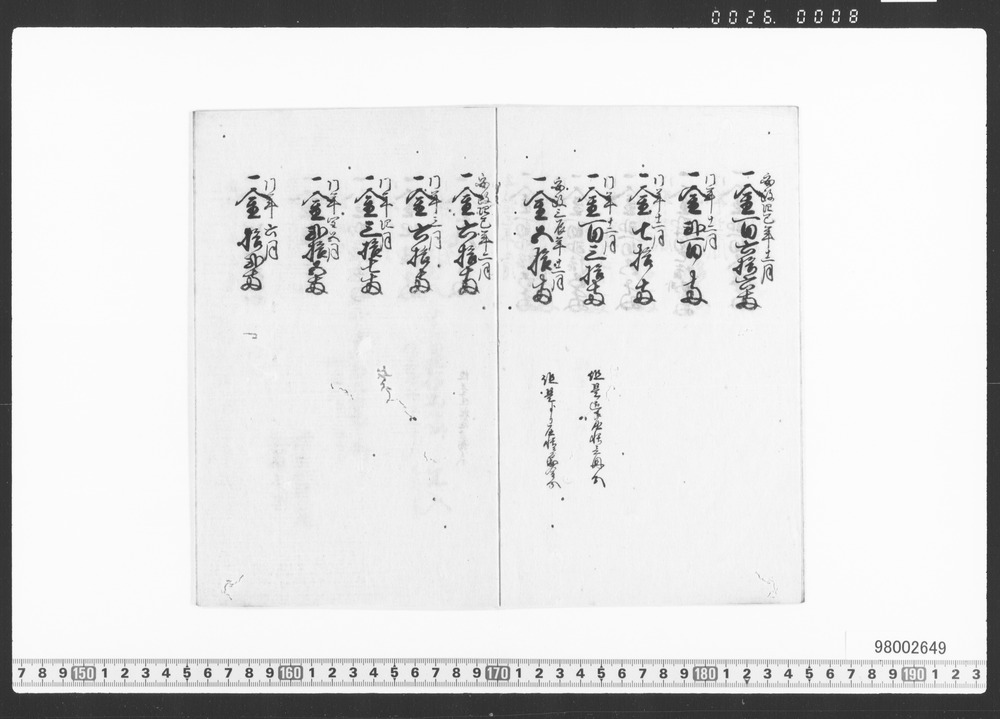 0026. 0008
安政四巳年十二月
一金百六拾六両
同年十二月
一金弐百両
同年十二月
一金七拾両
同年十二月
一金百三拾両
但是
安政三辰年十二月
一金五拾両
但是
安政四巳年二月
一金六拾両
同年三月
一金六拾両
同年四月
一金三拾七両
同年閏五月
一金弐拾五両
同年六月
一金拾弐両
98002649
7 8 9 150 1 2 3 4 5 6 7 8 9 160 1 2 3 4 5 6 7 8 9 170 1 2 3 4 5 6 7 8 9 180 1 2 3 4 5 6 7 8 9 190 1 2 3